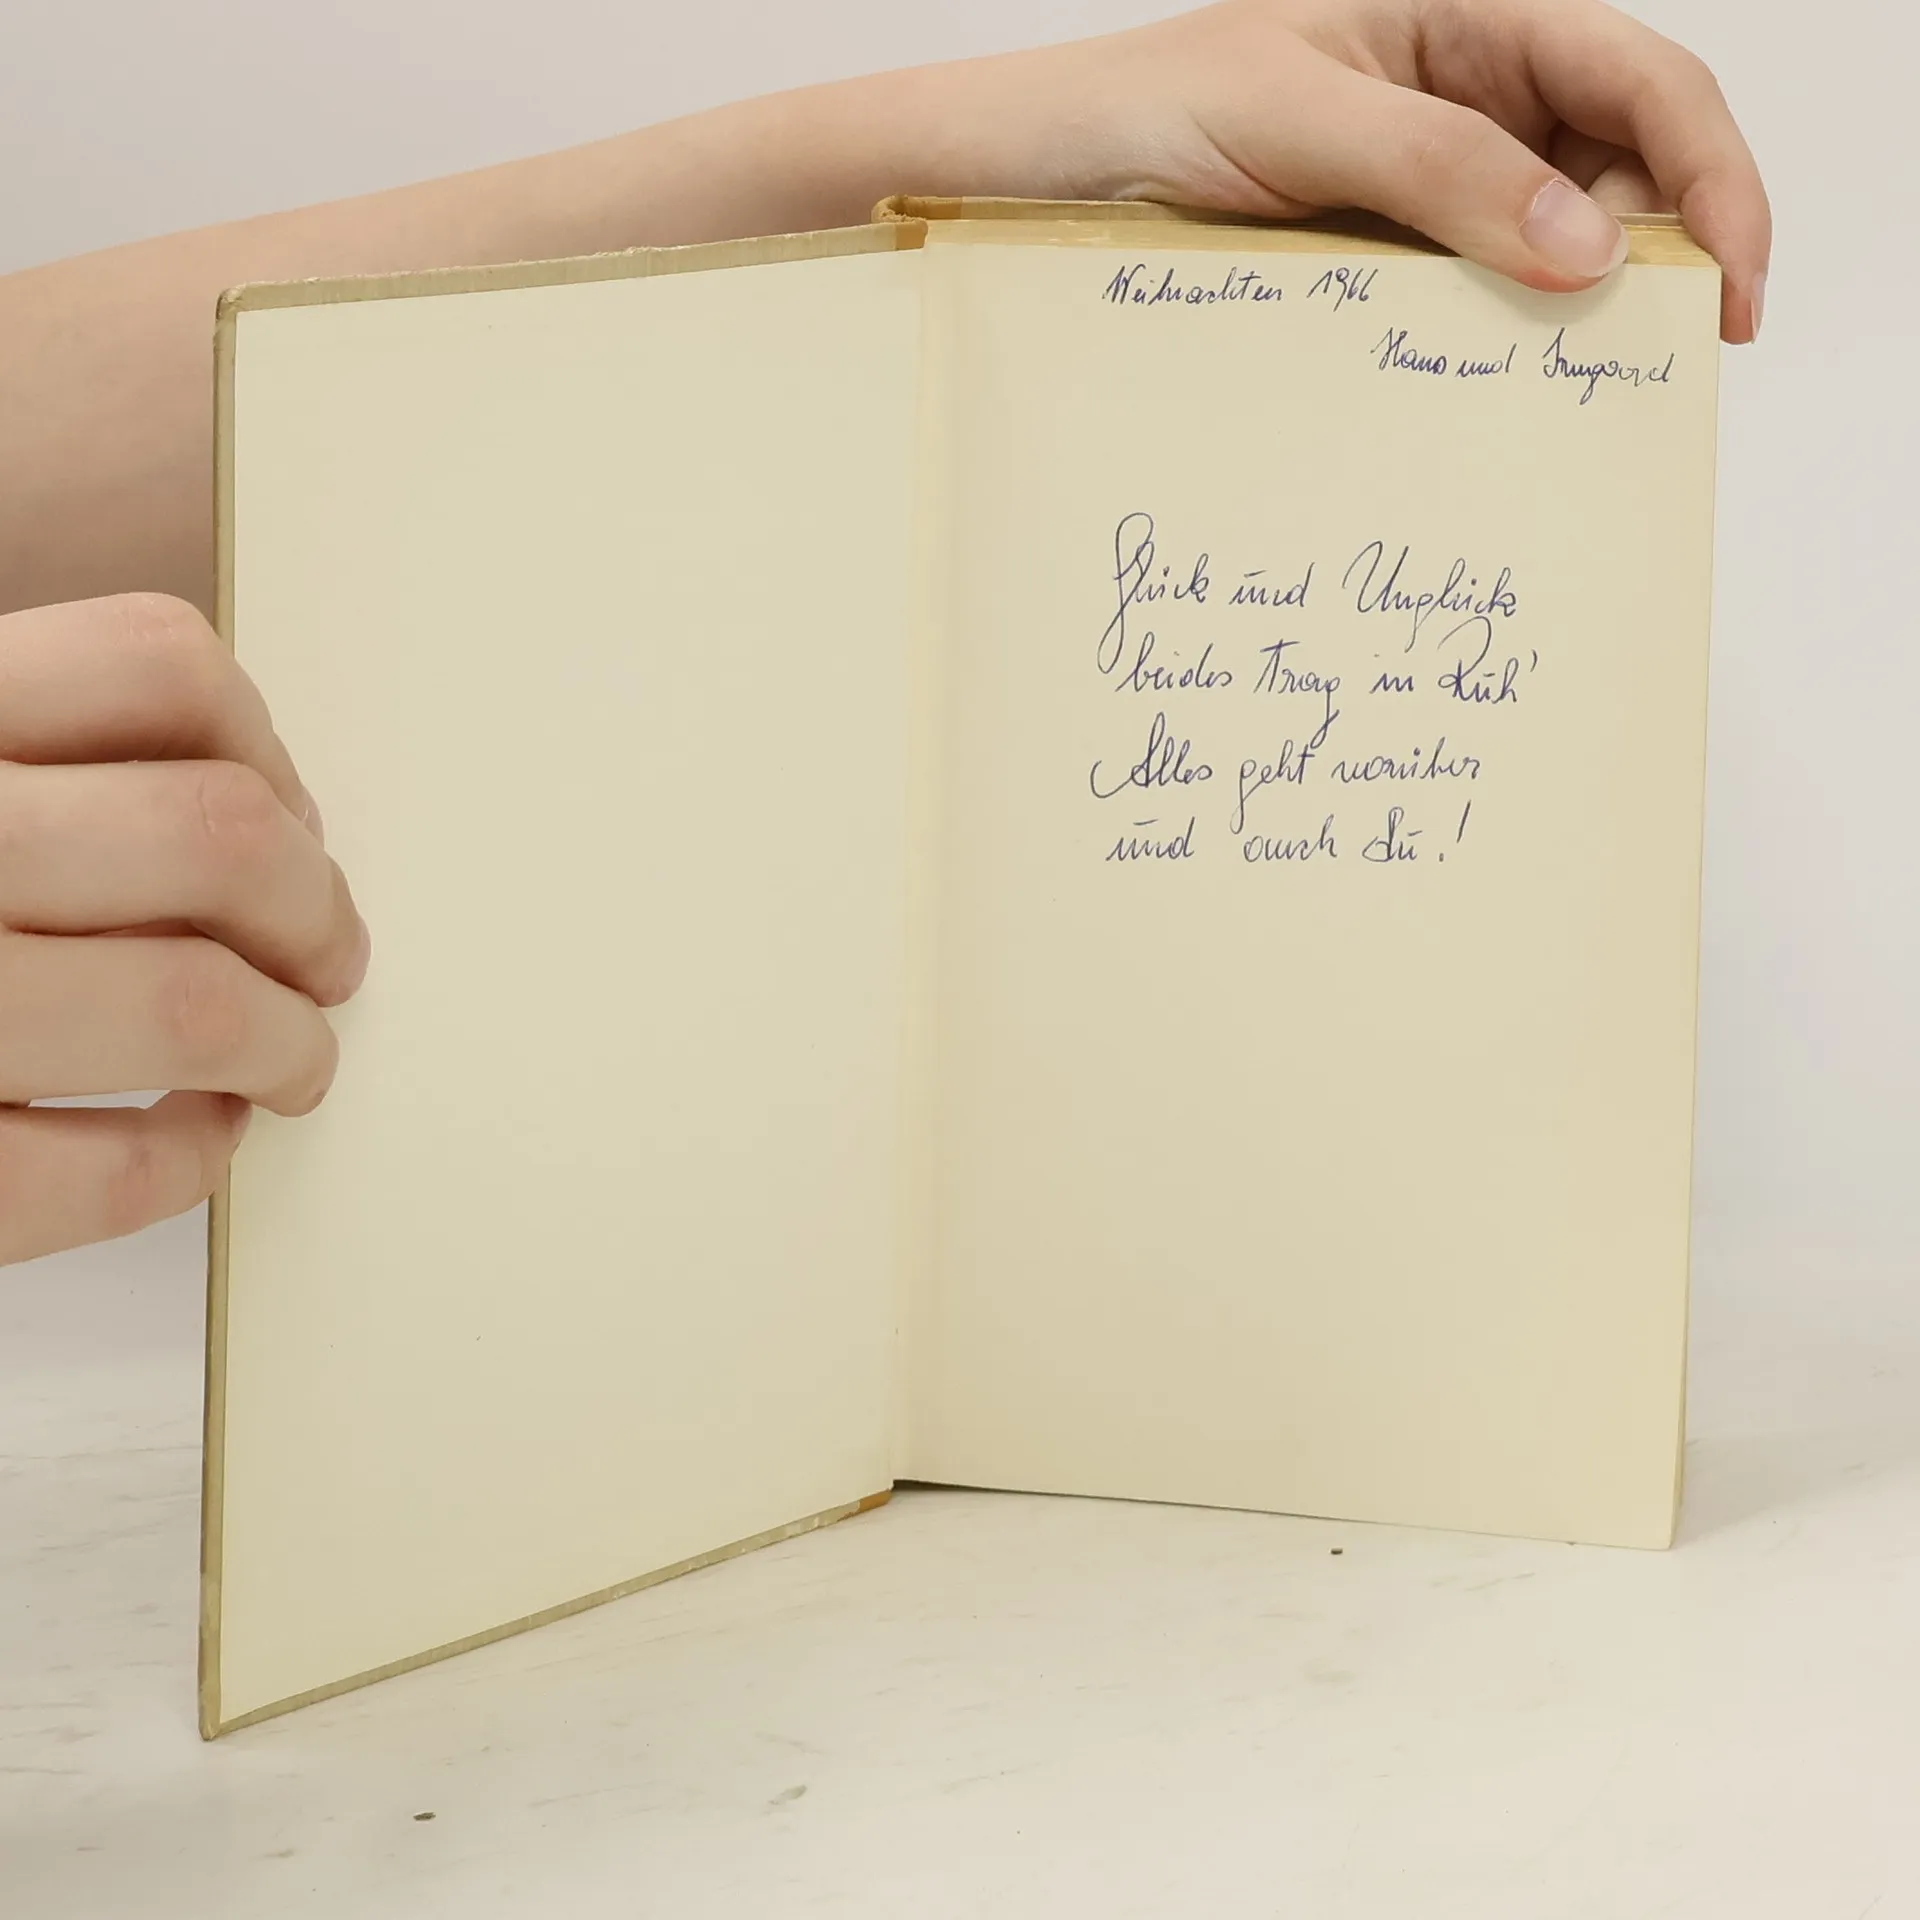 Weihnachten 1966
Hans und Irmgard
Glück und Unglück
beides trag in Ruh'
Alles geht vorüber
und auch Du.!